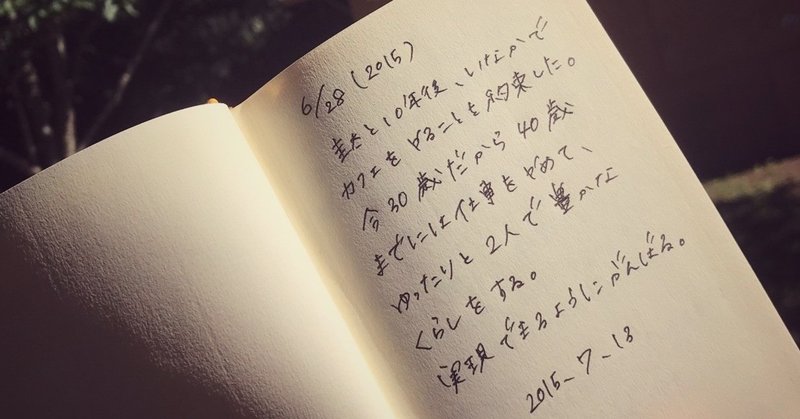 6/28 (2015)
圭太と10年後、いなかで
カフェをやることを約束した。
今30歳だから40歳
までには仕事をやめて、
ゆったりと2人で豊かな
くらしをする。
実現できるようにがんばる。
2015_7_13